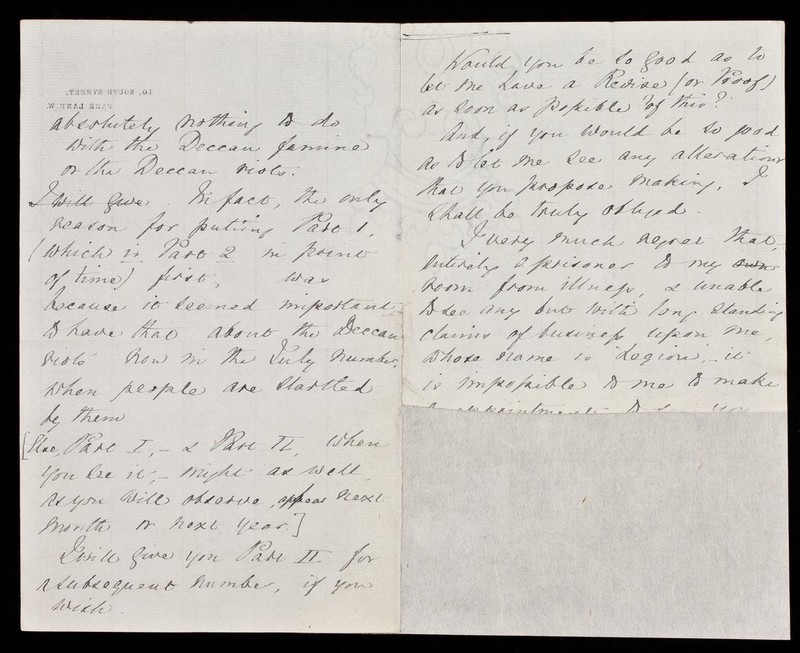 10, SOUTH STREET,
PARK LANE. W.
absolutely nothing to do
with the Deccan famine
or the Deccan riots.
I will give. In fact, the only
reason for putting Part 1,
(which is Part 2 in point
of time) first, was
because it seemed important
to have that about the Deccan
riots now in the July number,
when people are startled
by them
[Else, Part I, - & Part II, when
you see it, - might as well,
as you will observe, appear next
month or next year.]
I will give you Part II for
a subsequent number, if you
wish.
Would you be so good as to
let me have a Revise (or Proof)
as soon as possible of this?
And, if you would be so good
as to let me see any alterations
that you propose making, I
shall be truly obliged.
I very much regret that,
entirely a prisoner to my own
room from illness, & unable
to see any but with long standing
claims of business upon me,
whose name is Legion, - it
is impossible to me to make
appointment to see you